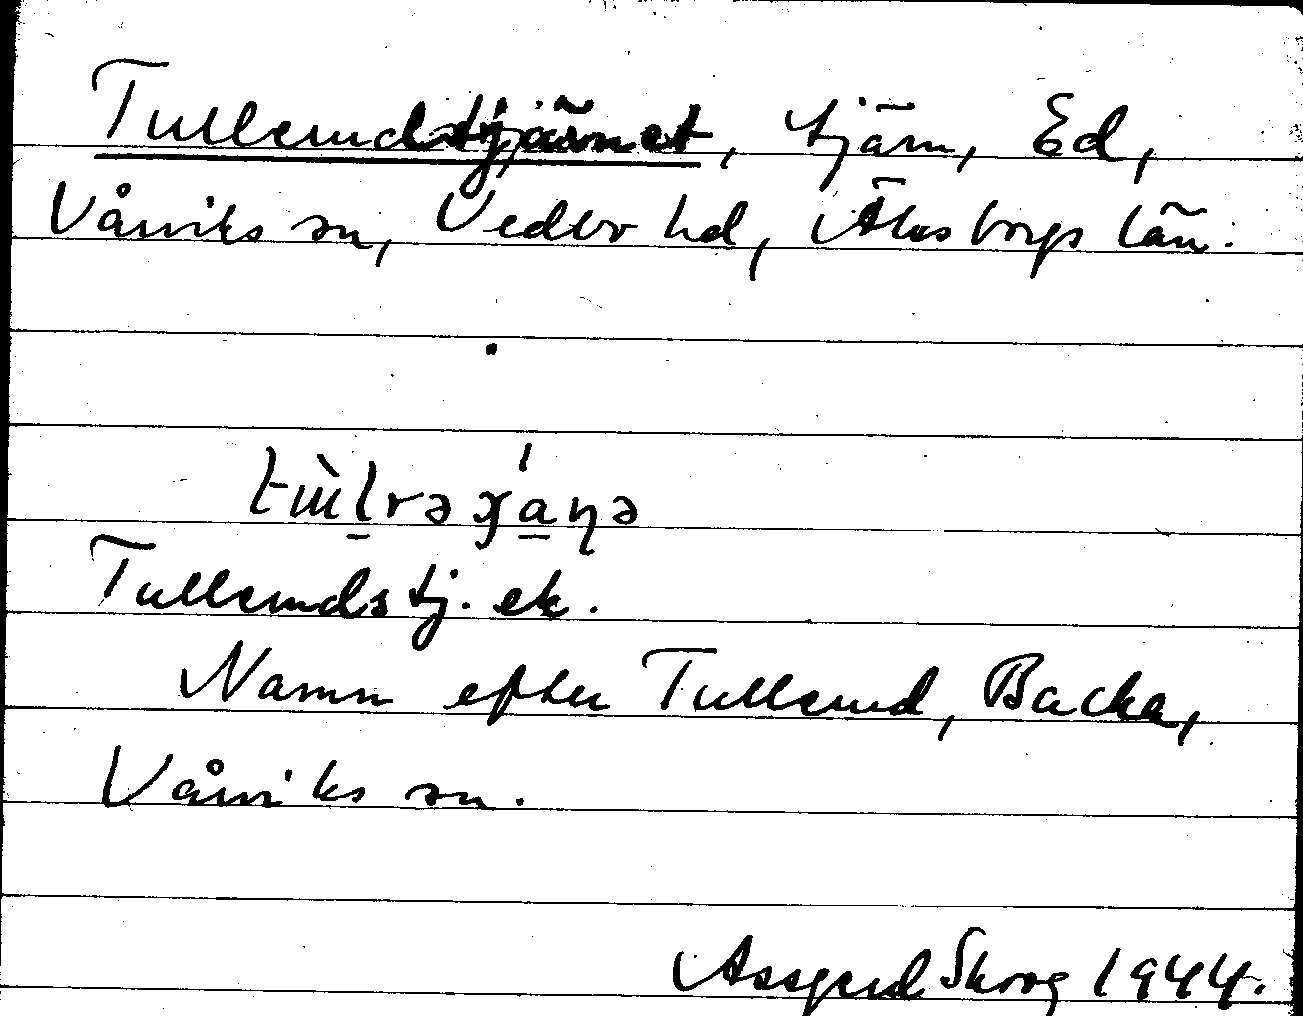 Tullerudstjärnet, tjärn, Ed,
Vårviks sn, Vedbo hd, Älvsborgs län.
tɯ̀lrəɣánə
Tullerudstj. ek.
Namn efter Tullerud, Backa,
Vårviks sn.
Assgerd Skoog 1944.